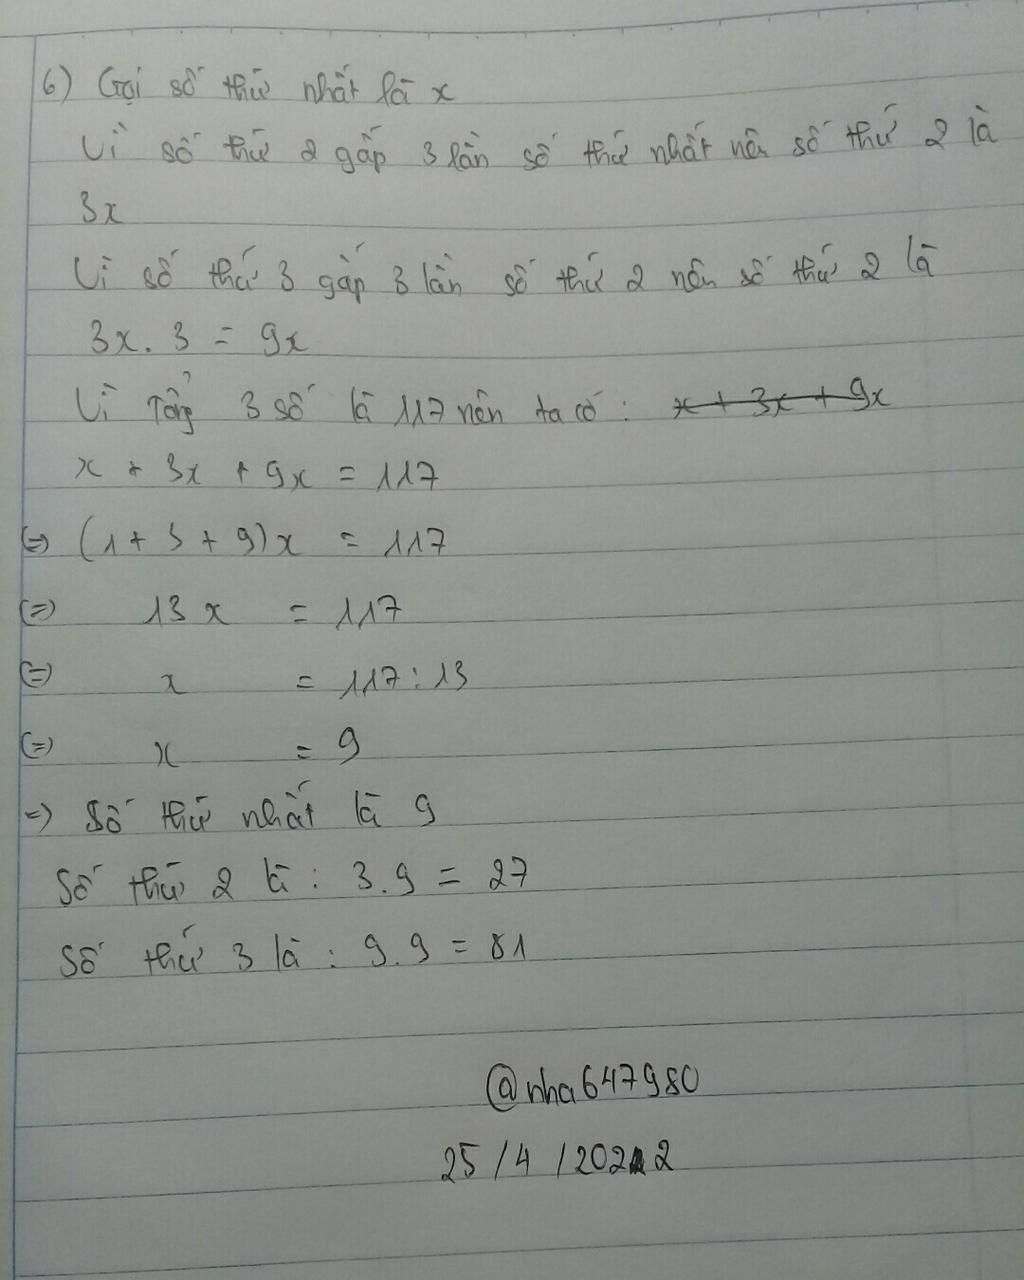 6) Gọi số thứ nhất là x
Vì số thứ 2 gấp 3 lần số thứ nhất nên số thứ 2 là
3x
Vì số thứ 3 gấp 3 lần số thứ 2 nên số thứ 2 là
3x. 3 = 9x
Vì Tổng 3 số là 117 nên ta có: x + 3x + 9x
x + 3x + 9x = 117
(=) (1 + 3 + 9)x = 117
(=) 13x = 117
(=) x = 117 : 13
(=) x = 9
=) Số thứ nhất là 9
Số thứ 2 là : 3.9 = 27
Số thứ 3 là : 9.9 = 81
@nha647980
25/4/2022